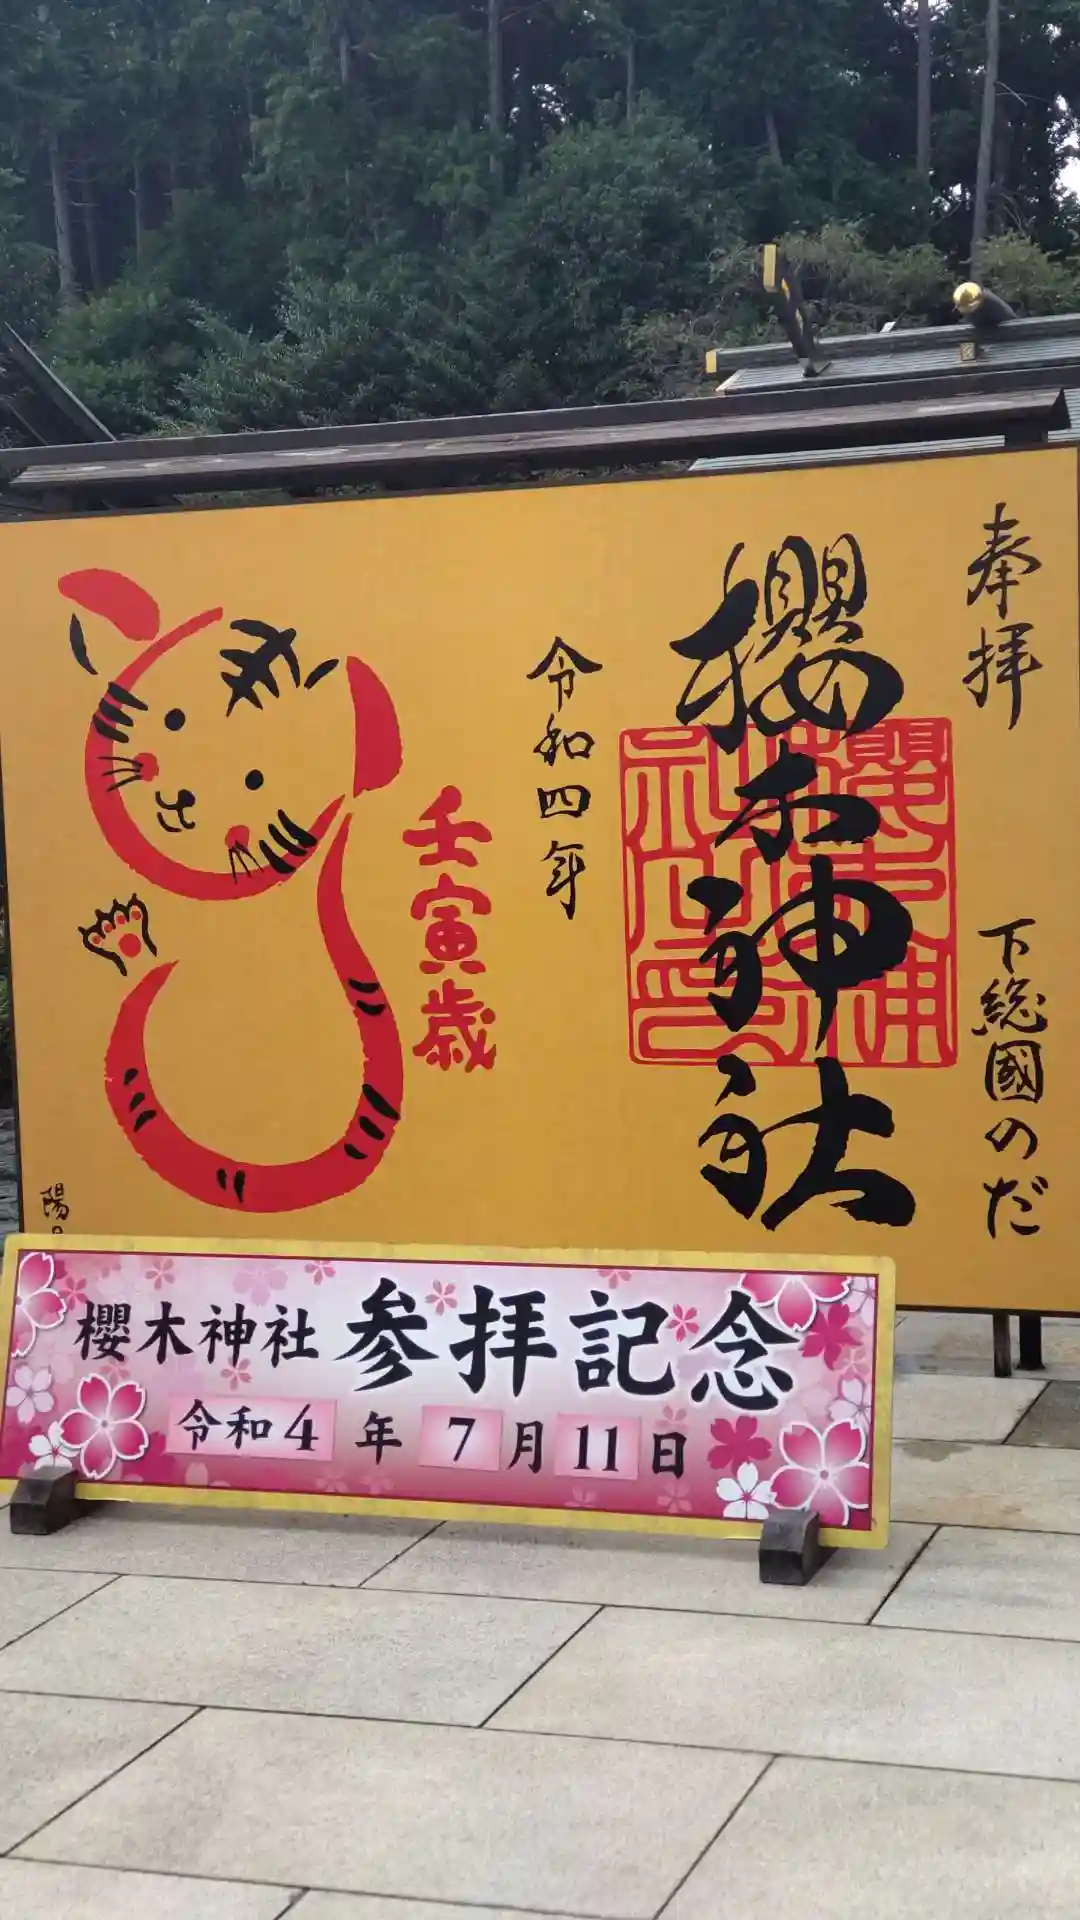 奉拝
下総國のだ
櫻木神社
令和四年
壬寅歳
陽
櫻木神社 参拝記念
令和4年7月11日